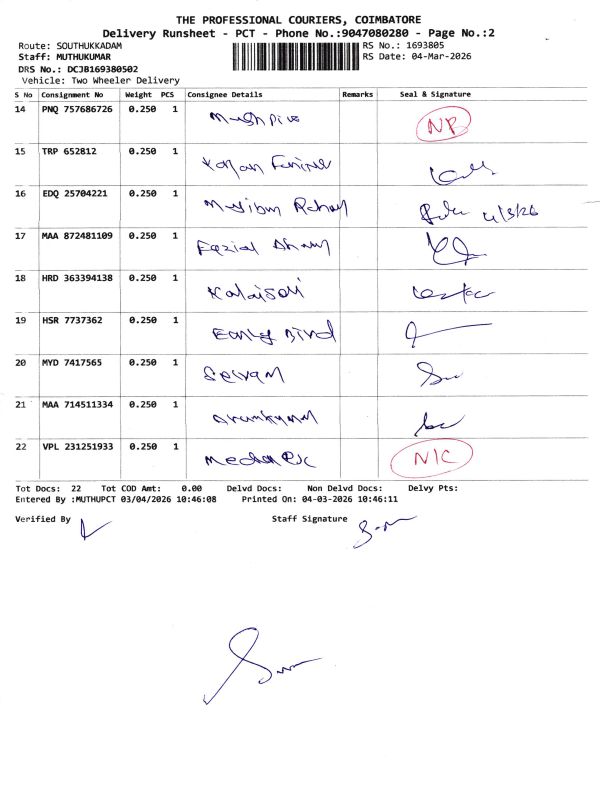 THE PROFESSIONAL COURIERS, COIMBATORE
Delivery Runsheet - PCT - Phone No.:9047080280 - Page No.:2
Route: SOUTHUKKADAM RS No.: 1693805
Staff: MUTHUKUMAR RS Date: 04-Mar-2026
DRS No.: DCJB169380502
Vehicle: Two Wheeler Delivery
S No Consignment No Weight PCS Consignee Details Remarks Seal & Signature
14 PNQ 757686726 0.250 1 NP
15 TRP 652812 0.250 1
16 EDQ 25704221 0.250 1 4/3/26
17 MAA 872481109 0.250 1
18 HRD 363394138 0.250 1 Kalaiseli
19 HSR 7737362 0.250 1 Early Bird
20 MYD 7417565 0.250 1 Selvam
21 MAA 714511334 0.250 1 Arunkumar
22 VPL 231251933 0.250 1 N/C
Tot Docs: 22 Tot COD Amt: 0.00 Delvd Docs: Non Delvd Docs: Delvy Pts:
Entered By :MUTHUPCT 03/04/2026 10:46:08 Printed On: 04-03-2026 10:46:11
Verified By Staff Signature